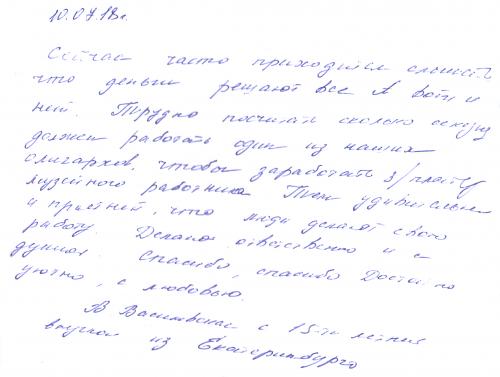 10.07.18г.
Сейчас часто приходится слышать
что деньги решают все А вот и
нет. Трудно посчитать сколько секунд
должен работать один из наших
олигархов, чтобы заработать з/плату
музейного работника Тем удивительнее
и приятней, что люди делают свою
работу. Делают ответственно и с
душой. Спасибо, спасибо Достойно
уютно, с любовью.
с 15-ти летней
внучкой из Екатеринбурга